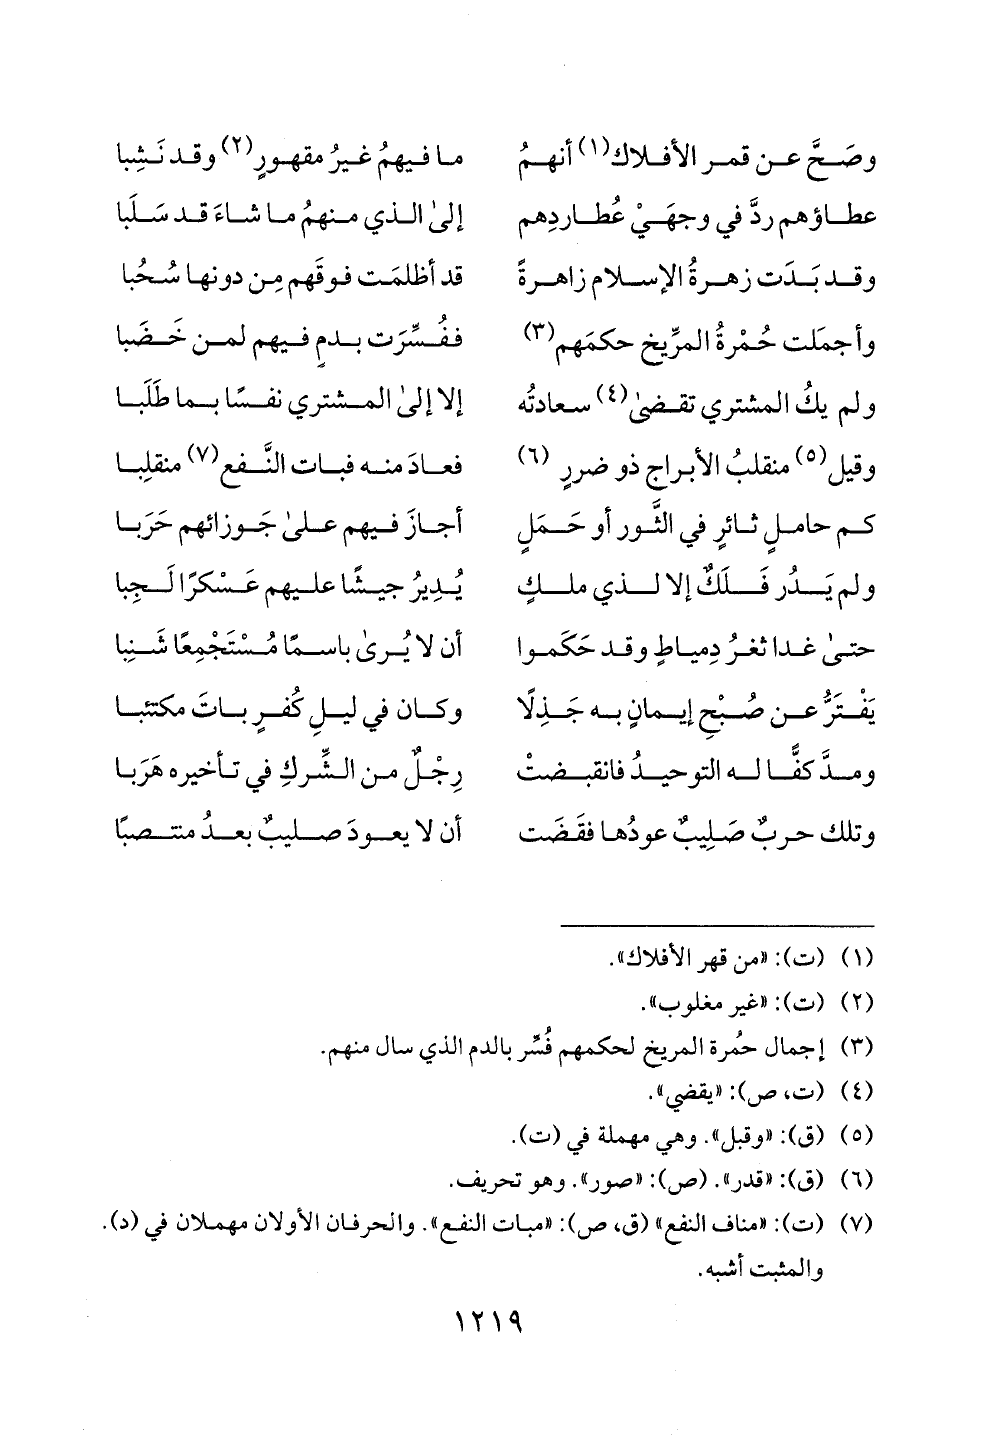 وصَحَّ عن قمر الأفلاك(١) أنهمُ ما فيهمُ غيرُ مقهورٍ(٢) وقد نَشِبا
عطاؤهم ردَّ في وجهَيْ عُطاردِهم إلىٰ الذي منهمُ ما شاءَ قد سَلَبا
وقد بَدَت زهرةُ الإسلام زاهرةً قد أظلمَت فوقَهم مِن دونها سُحُبا
وأجمَلت حُمْرةُ المرِّيخ حكمَهم(٣) ففُسِّرَت بدمٍ فيهم لمن خَضَبا
ولم يكُ المشتري تقضىٰ(٤) سعادتُه إلا إلىٰ المشتري نفسًا بما طَلَبا
وقيل(٥) منقلبُ الأبراج ذو ضررٍ (٦) فعادَ منه فبات النَّفع(٧) منقلبا
كم حاملٍ ثائرٍ في الثَّور أو حَمَلٍ أجازَ فيهم علىٰ جَوزائهم حَرَبا
ولم يَدُر فَلَكٌ إلا لذي ملكٍ يُدِيرُ جيشًا عليهم عَسْكرًا لَجِبا
حتىٰ غدا ثغرُ دِمياطٍ وقد حَكَموا أن لا يُرىٰ باسمًا مُسْتَجْمِعًا شَنِبا
يَفْتَرُّ عن صُبْحِ إيمانٍ به جَذِلًا وكان في ليلِ كُفرٍ باتَ مكتئبا
ومدَّ كفًّا له التوحيدُ فانقبضتْ رِجْلٌ من الشِّركِ في تأخيره هَرَبا
وتلك حربٌ صَلِيبٌ عودُها فقَضَت أن لا يعودَ صليبٌ بعدُ منتصبًا
(١) (ت): «من قهر الأفلاك».
(٢) (ت): «غير مغلوب».
(٣) إجمال حمُرة المريخ لحكمهم فُسِّر بالدم الذي سال منهم.
(٤) (ت، ص): «يقضي».
(٥) (ق): «وقبل». وهي مهملة في (ت).
(٦) (ق): «قدر». (ص): «صور». وهو تحريف.
(٧) (ت): «مناف النفع» (ق، ص): «مبات النفع». والحرفان الأولان مهملان في (د).
والمثبت أشبه.
١٢١٩